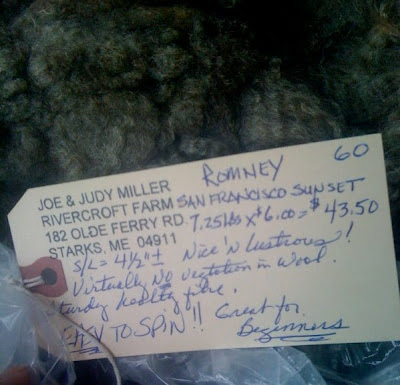 60
ROMNEY
JOE & JUDY MILLER
RIVERCROFT FARM SAN FRANCISCO SUNSET
182 OLDE FERRY RD. 7.25 lbs x $6.00 = $43.50
STARKS, ME 04911
S/L = 4½" ± Nice 'N Lustrous!
Virtually No in Wool.
healthy fibre.
EASY TO SPIN!! Great for
Beginners